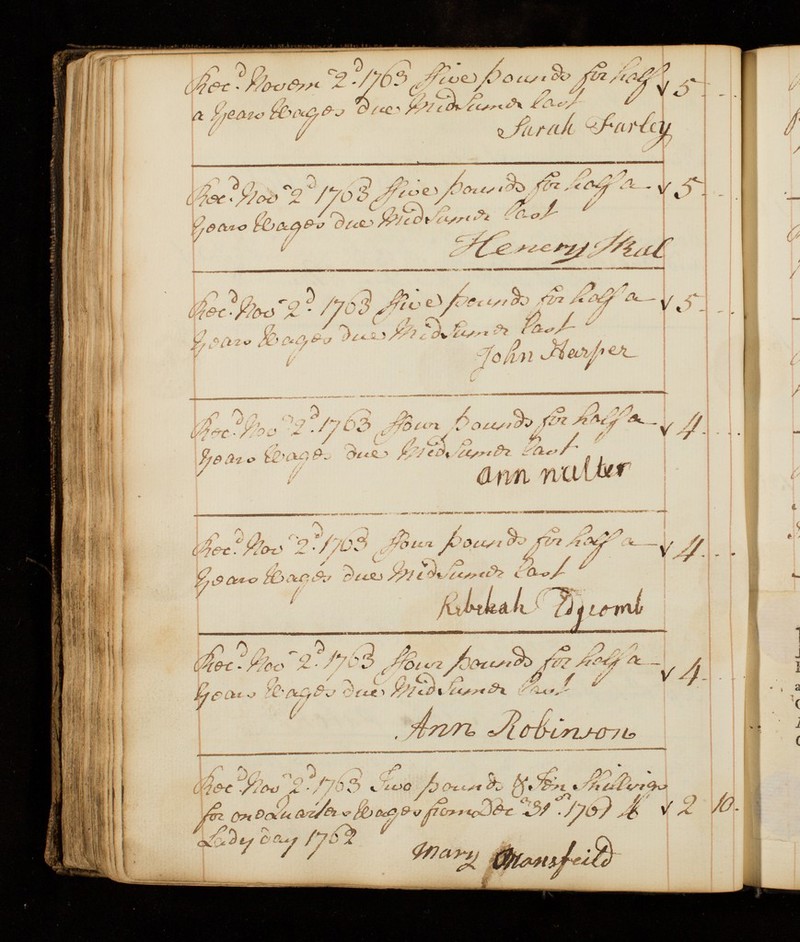 Rec.d Novem 2.d 1763 ffive pounds for half √ 5 - -
a Years Wages due Midsumer last
Sarah Farley
Rec.d Nov 2d 1763 ffive pounds for half a √ 5 - -
Years Wages due Midsumer last
Henery
Rec.d Nov 2d 1763 ffive pounds for half a √ 5 - -
Years Wages due Midsumer last
John Harper
Rec.d Nov 2.d 1763 ffour pounds for half a √ 4 - -
Years Wages due Midsumer last
ann
Rec.d Nov 2.d 1763 ffour pounds for half a √ 4 - -
Years Wages due Midsumer last
Rebekah Edgcomb
Rec.d Nov 2.d 1763 ffour pounds for half a √ 4 - -
Years Wages due Midsumer last
Ann Robinson
Rec.d Nov 2.d 1763 Two pounds & Ten Shillings
for one Quarters Wages from Dec 31st 1761 to √ 2 10 -
Lady day 1762
Mary Mansfeild